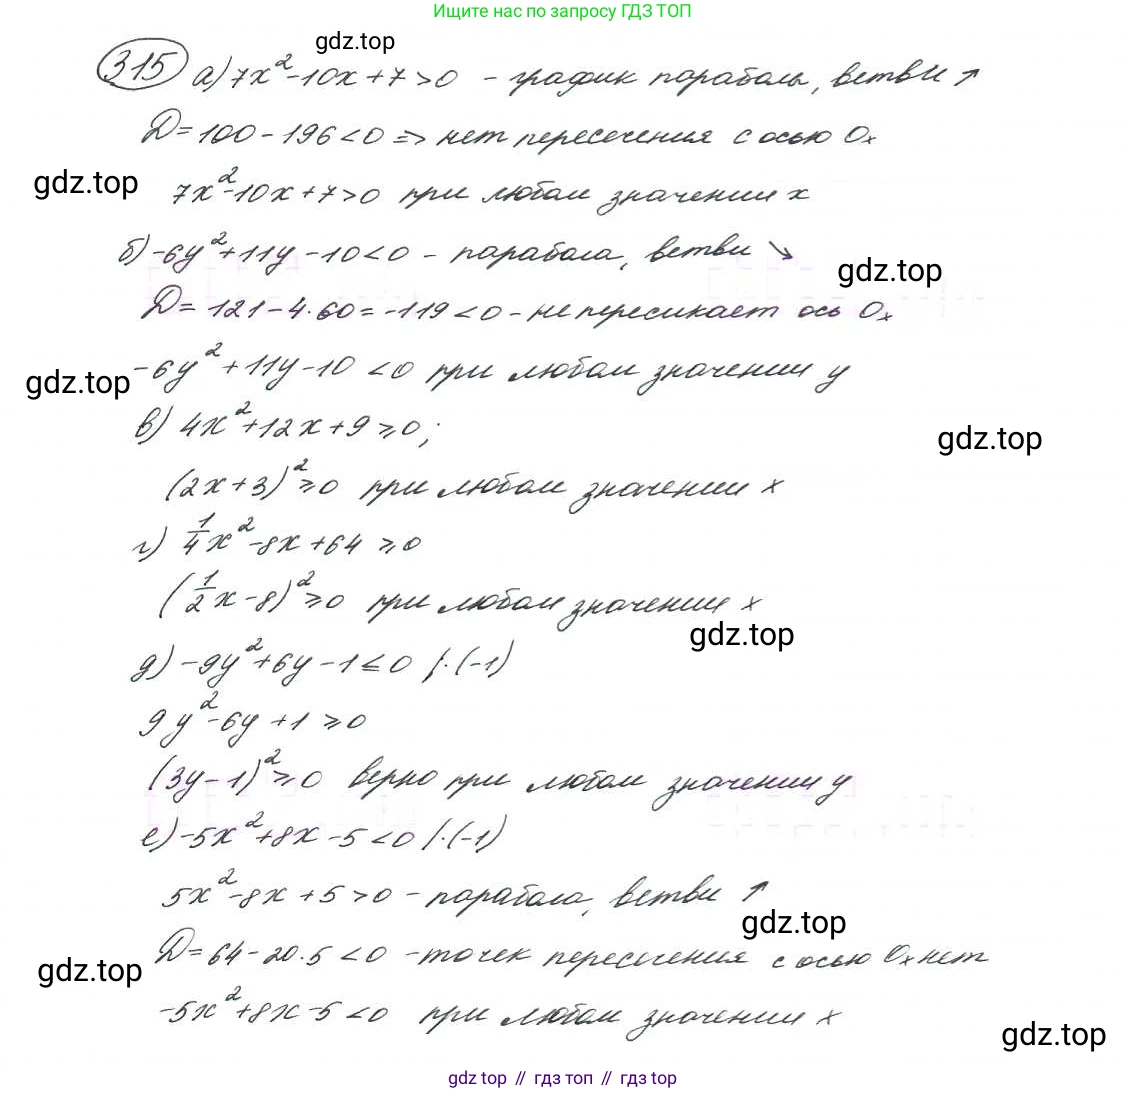 Ищите нас по запросу ГДЗ ТОП
gdz.top
315 а) 7x²-10x+7>0 - график параболы, ветви ↗
D=100-196<0 => нет пересечения с осью Ox
gdz.top
7x²-10x+7>0 при любом значении x
б) -6y²+11y-10<0 - парабола, ветви ↘
gdz.top
D=121-4·60=-119<0 - не пересикает ось Ox
-6y²+11y-10<0 при любом значении y
gdz.top
в) 4x²+12x+9≥0;
gdz.top
(2x+3)²≥0 при любом значении x
г) 1/4x²-8x+64≥0
(1/2x-8)²≥0 при любом значении x
gdz.top
д) -9y²+6y-1≤0 /·(-1)
9y²-6y+1≥0
(3y-1)²≥0 верно при любом значении y
е) -5x²+8x-5<0 /·(-1)
5x²-8x+5>0 - парабола, ветви ↗
gdz.top
D=64-20·5<0 - точек пересечения с осью Ox нет
gdz.top
-5x²+8x-5<0 при любом значении x
gdz.top
gdz top // гдз топ // gdz top